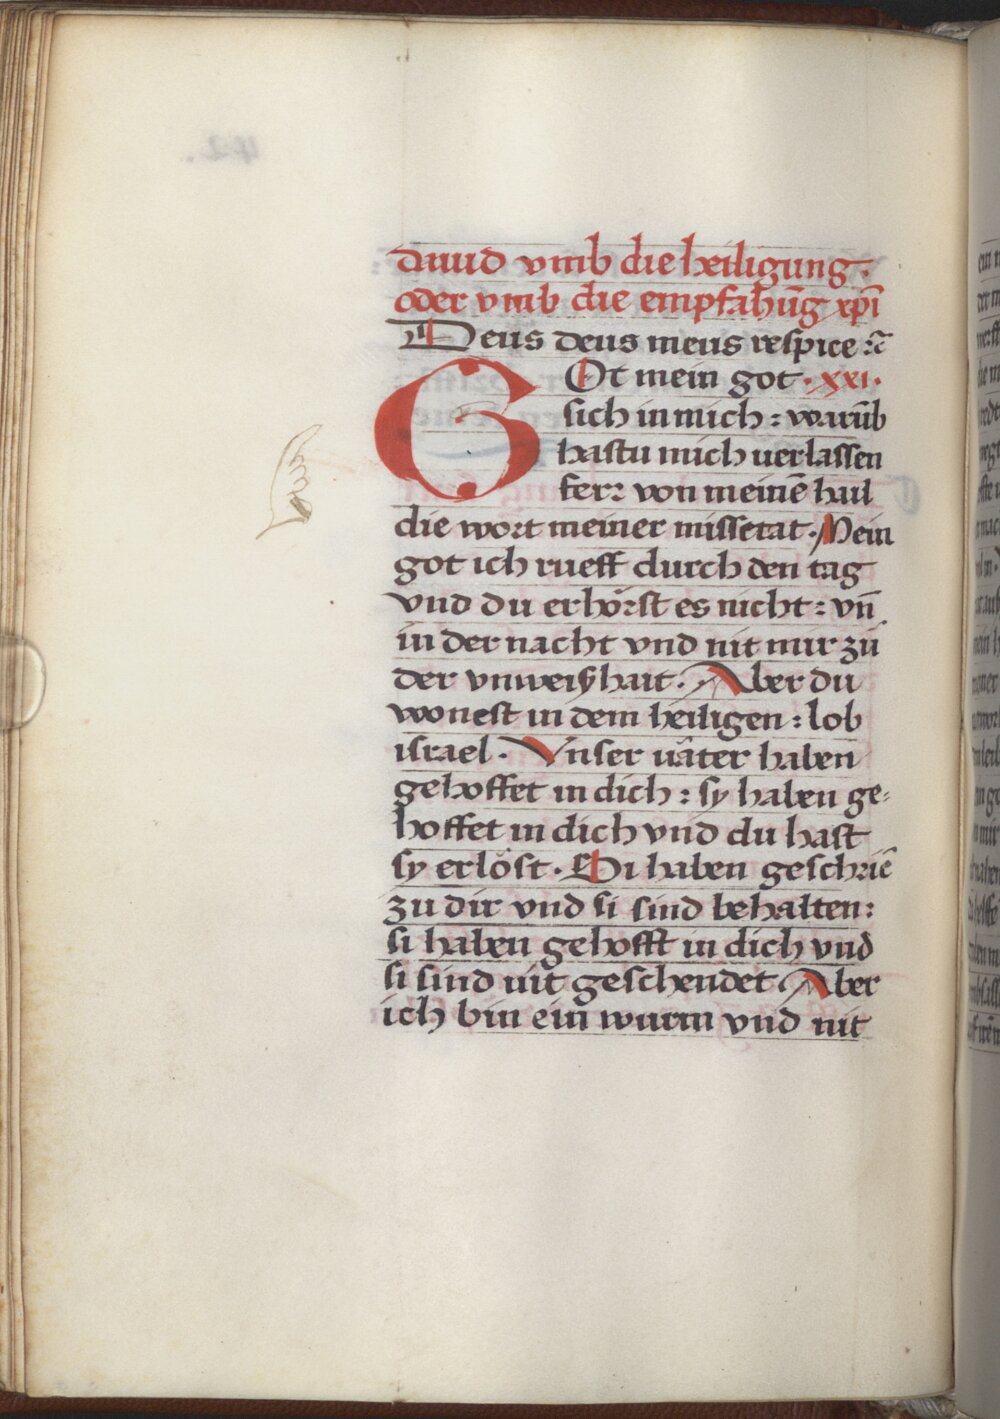 dauid vmb die heiligung.
oder vmb die empfahūg xp̄i
Deus deus meus respice :c̄
GOt mein got · xxi.
sich in mich : warūb
hastu mich uerlassen
ferr von meinē hail
die wort meiner missetat. Mein
got ich rueff durch den tag
vnd du erhörst es nicht : vn̄
in der nacht vnd nit mir zů
der vnweiſhait. Aber du
wonest in dem heiligen : lob
israel. Vnser uåter haben
gehoffet in dich : sy haben ge-
hoffet in dich vnd du hast
sy erlöst. Si haben geschriē
zu dir vnd si sind behalten:
si haben gehofft in dich vnd
si sind nit geschendet Aber
ich bin ein wurm vnd nit